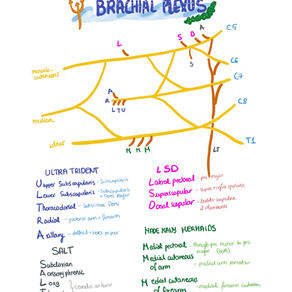 BRACHIAL PLEXUS
L
S
D
A
C5
S
musculo-
cutaneous
C6
C7
A
R
L T U
median
C8
ulnar
M M M
LT
T1
ULTRA TRIDENT
Upper Subscapularis - Subscapularis
Lower Subscapularis - Subscapularis
+ teres major
Thoracodorsal - latissimus Dorsi
Radial - posterior arm + forearm
Axillary - deltoid + teres minor
SALT
Subclavian
A
Long
LSD
Lateral pectoral - pec major
Suprascapular - supra + infra spinatus
Dorsal scapular - levator scapulae
2 rhomboids
MADE MANY MERMAIDS
Medial pectoral - through pec minor to pec
major (both)
Medial cutaneous
of arm - medial arm
Medial cutaneous
of forearm